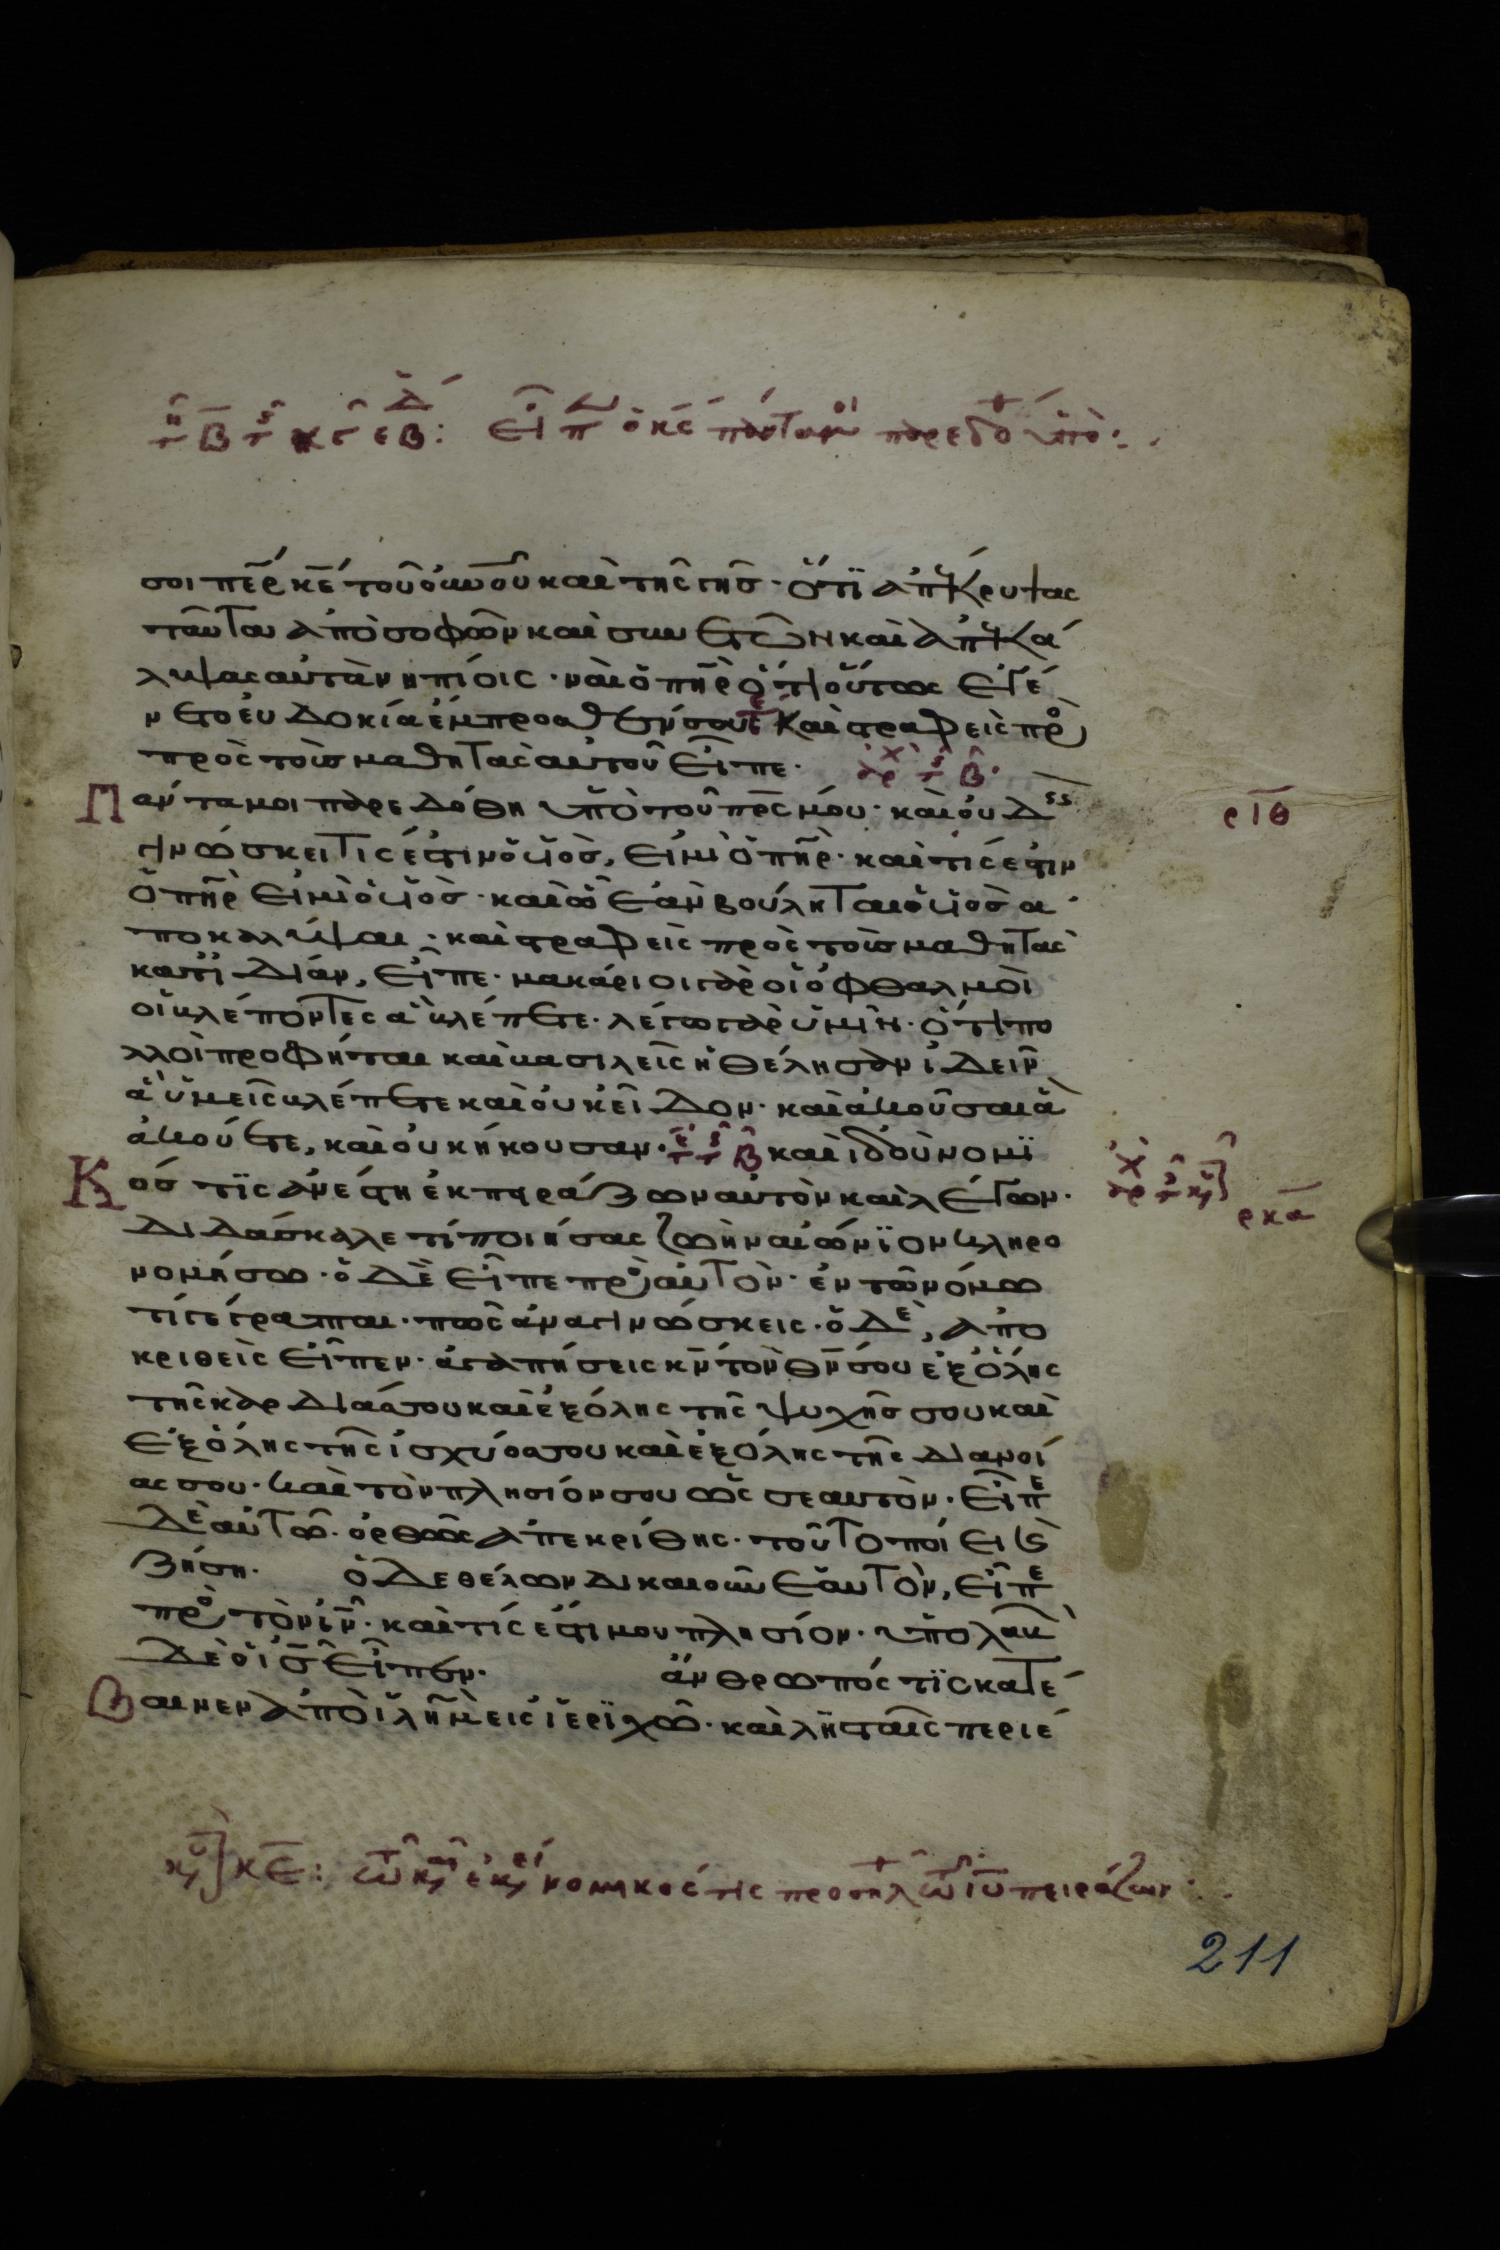 τῇ Β τῆς κϛ εβδ: εἶπ ὁ κς πάντα μοι παρεδό ὑπὸ:
σοι περ κε τοῦ οὐνοῦ καὶ τῆς γῆς· ὅτϊ ἀπέκρυψας
ταῦτα ἀπὸ σοφῶν καὶ συνετῶν καὶ ἀπεκά
λυψας αὐτὰ νηπίοις· ναὶ ὁ πηρ ὅτι οὕτως ἐγέ
νετο εὐδοκία ἔμπροσθέν σου τε Καὶ στραφεὶς πρὸ
πρὸς τοὺς μαθητὰς αὐτοῦ εἶπε· ἀρχ τ Β·
Πάντα μοι παρεδόθη ὑπὸ τοῦ πρς μου· καὶ οὐδεὶς
ριθ
γινώσκει τίς ἐστιν ὁ υἱὸς, εἰ μὴ ὁ πηρ· καὶ τίς ἐστιν
ὁ πηρ εἰ μὴ ὁ υἱὸς· καὶ ᾧ ἐὰν βούληται ὁ υἱὸς ἀ
ποκαλύψαι· καὶ στραφεὶς πρὸς τοὺς μαθητὰς
κατϊδίαν, εἶπε· μακάριοι γὰρ οἱ ὀφθαλμοὶ
οἱ βλέποντες ἃ βλέπετε· λέγω γὰρ ὑμῖν· ὅτι πο
λλοὶ προφῆται καὶ βασιλεῖς ἠθέλησαν ἰδεῖν
ἃ ὑμεῖς βλέπετε καὶ οὐκ εἶδον· καὶ ἀκοῦσαι ἃ
ἀκούετε, καὶ οὐκ ἤκουσαν· τε τ Β καὶ ἰδοὺ νομϊ
Κός τϊς ἀνέστη ἐκπηράζων αὐτὸν καὶ λέγων·
ἀρχ τ κυ
ρκα
διδάσκαλε τί ποιήσας ζωὴν αἰώνϊον κληρο
νομήσω· ὁ δὲ εἶπε πρὸ αὐτὸν· ἐν τῶ νόμω
τί γέγραπται· πῶς ἀναγινώσκεις· ὁ δὲ, ἀπο
κριθεὶς εἶπεν· ἀγαπήσεις κν τὸν θν σου ἐξ ὅλης
τῆς καρδίας σου καὶ ἐξ ὅλης τῆς ψυχῆς σου καὶ
ἐξ ὅλης τῆς ἰσχύος σου καὶ ἐξ ὅλης τῆς διανοί
ας σου· καὶ τὸν πλησίον σου ὡς σεαυτὸν· εἶπε
δὲ αὐτῶ· ὀρθῶς ἀπεκρίθης· τοῦτο ποίει καὶ
ζήση· ὁ δὲ θέλων δικαιοῦν ἑαυτὸν, εἶπε
πρὸ τὸν ιν· καὶ τίς ἐστι μου πλησίον· ὑπολαβ
δὲ ὁ ις εἶπεν· ἄνθρωπός τϊς κατέ
Βαινεν ἀπὸ ιλημ εἰς ἰερϊχῶ· καὶ λησταῖς περιέ
κυ κε: τῶ καιρ ἐκεί νομηκός τις προσηλ τῶ ιυ πειράζων:
211